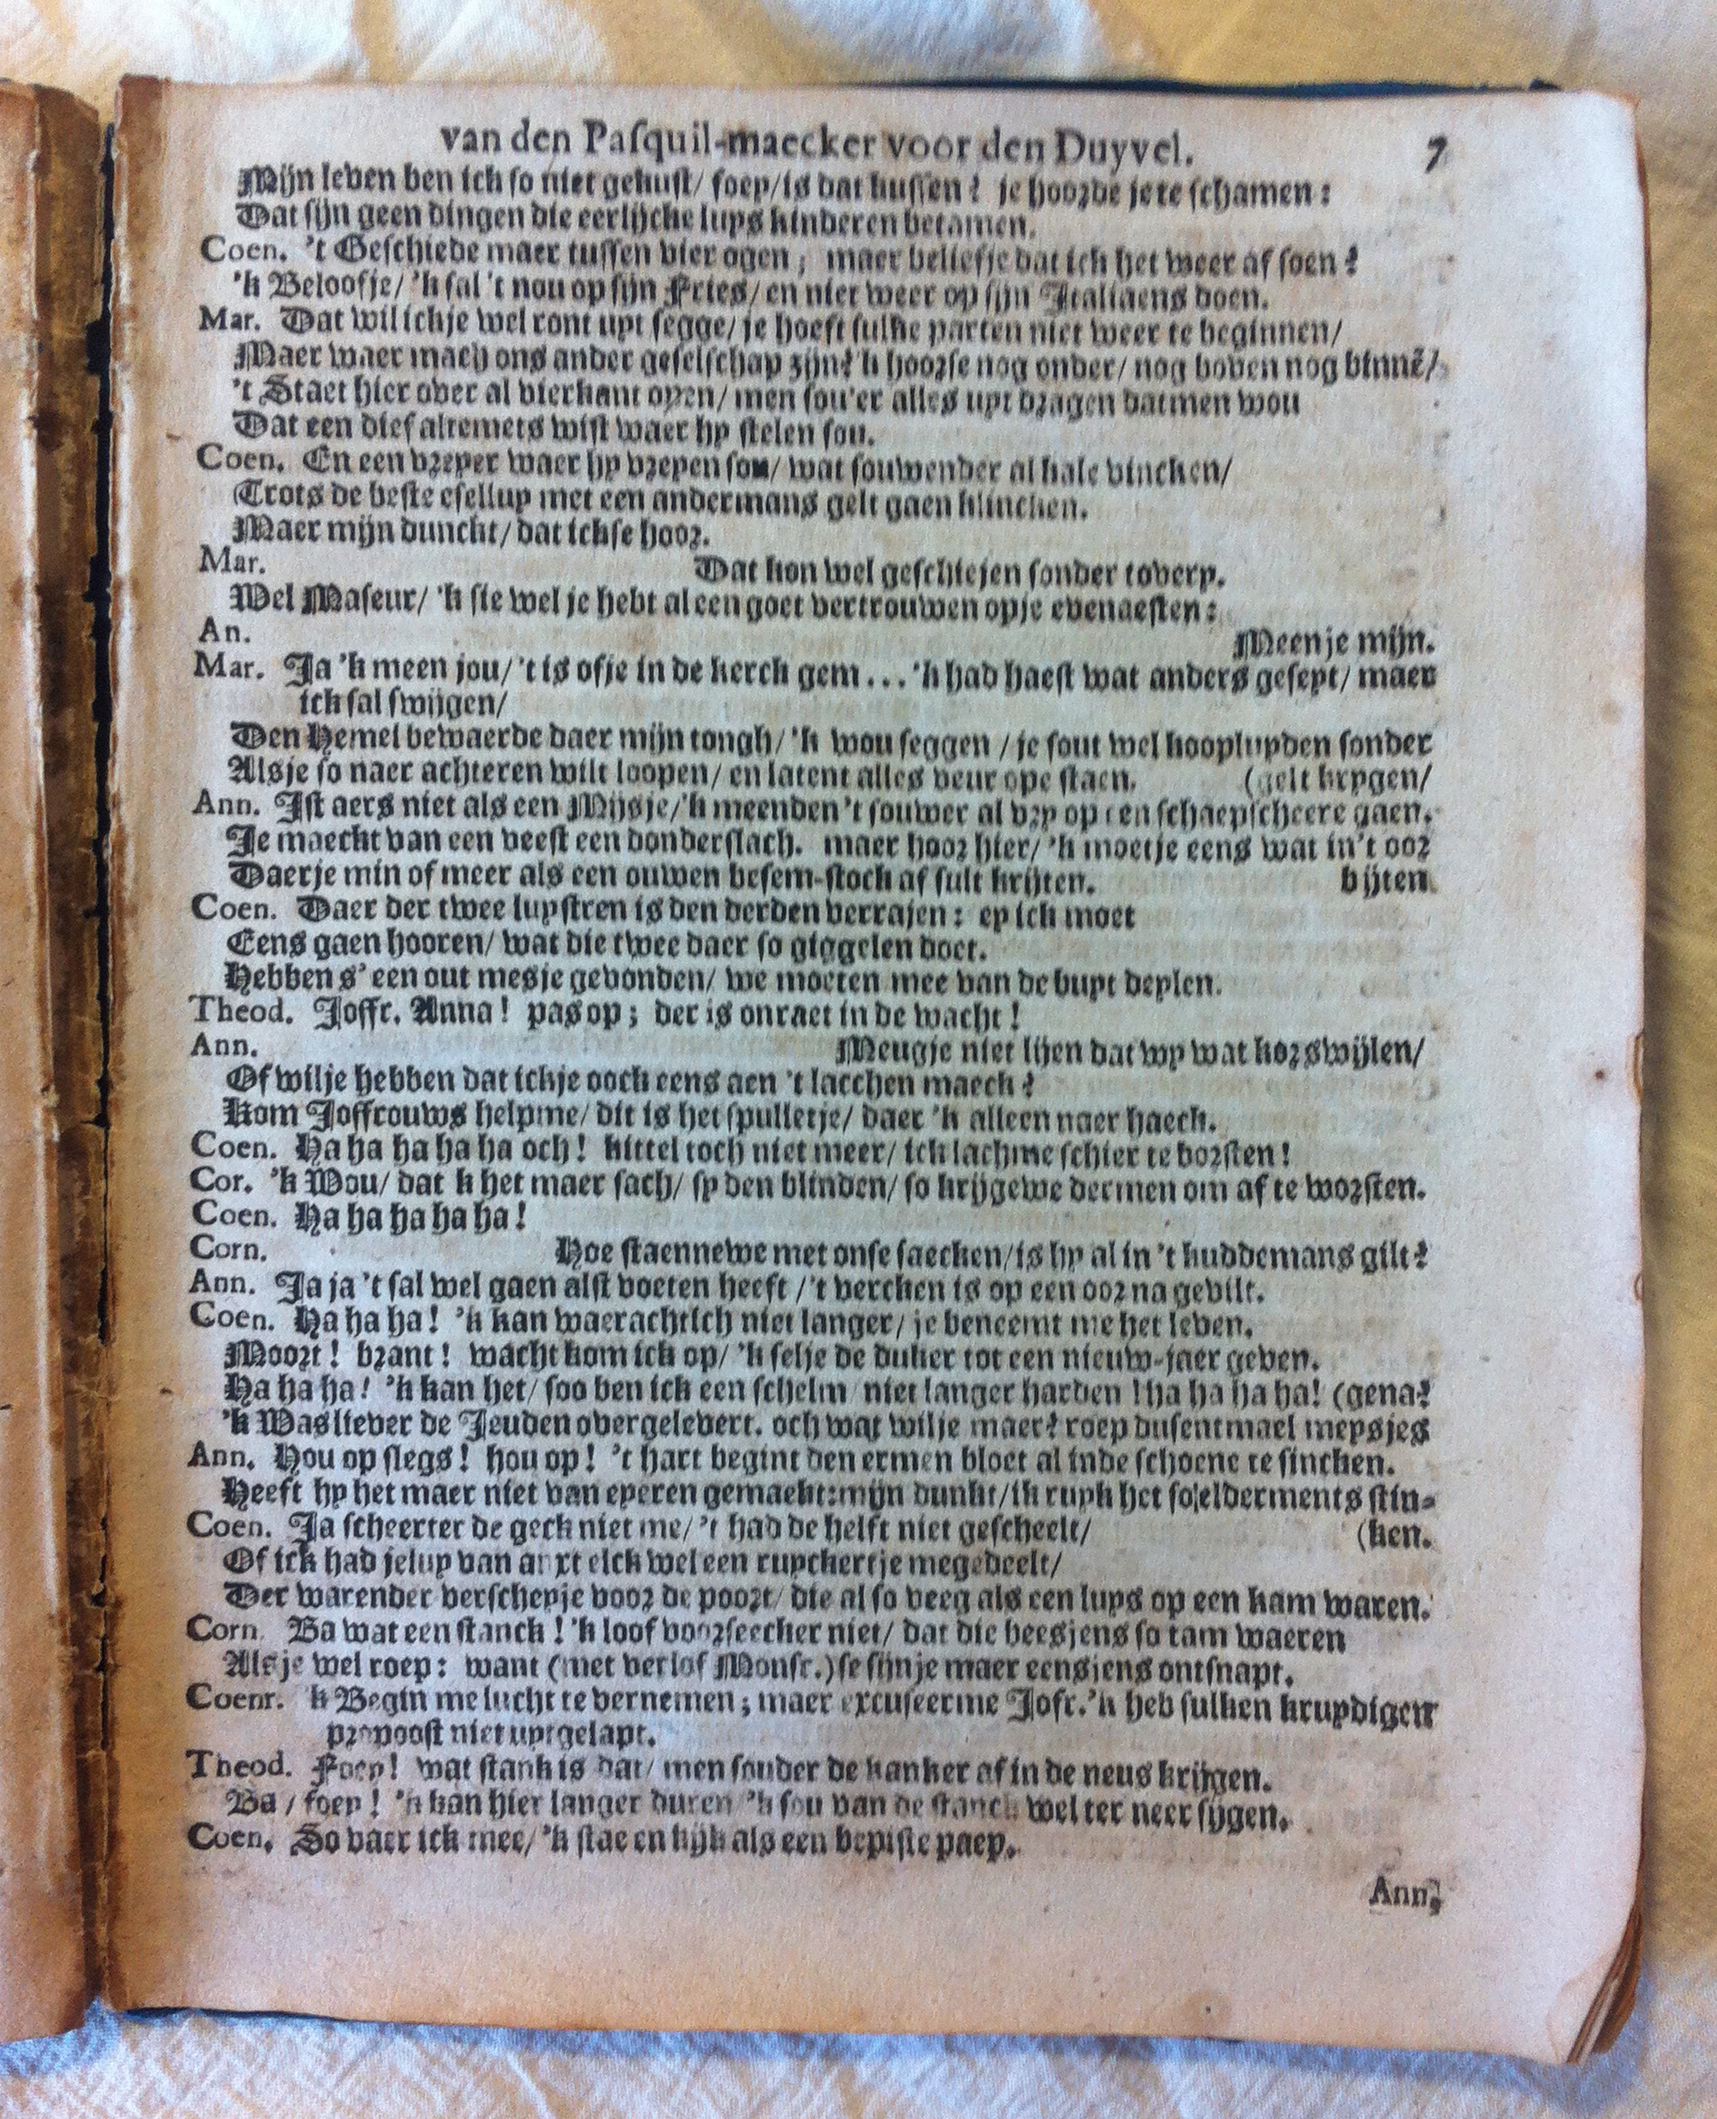 van den Pasquil-maecker voor den Duyvel. 7
Mijn leven ben ick so niet gekust/ foey/ is dat kussen? je hoorde je te schamen:
Dat sijn geen dingen die eerlijcke luys kinderen betamen.
Coen. 't Geschiede maer tussen vier ogen; maer beliefje dat ick het weer af soen?
'k Beloofje/ 'k sal 't nou op sijn Fries/ en niet weer op sijn Italiaens doen.
Mar. Dat wil ickje wel ront uyt segge/ je hoeft sulke parten niet weer te beginnen/
Maer waer mach ons ander geselschap zijn? 'k hoorse nog onder/ nog boven nog binnē/
't Staet hier over al vierkant open/ men sou'er alles uyt dragen datmen wou
Dat een dief altemets wist waer hy stelen sou.
Coen. En een vreyer waer hy vreyen sou/ wat souwender al kale vincken/
Trots de beste esellup met een andermans gelt gaen klincken.
Maer mijn dunckt/ dat ickse hoor.
Mar. Dat kon wel geschiejen sonder tovery.
Wel Maseur/ 'k sie wel je hebt al een goet vertrouwen opje evenaesten:
An. Meenje mijn.
Mar. Ja 'k meen jou/ 't is ofje in de kerck gem... 'k had haest wat anders geseyt/ maer
ick sal swijgen/
Den Hemel bewaerde daer mijn tongh/ 'k wou seggen / je sout wel kooplupden sonder
Alsje so naer achteren wilt loopen/ en latent alles veur ope staen. (gelt krygen/
Ann. Ist aers niet als een Mijsje/ 'k meenden 't souwer al vry op een schaepscheere gaen.
Je maeckt van een veest een donderslach. maer hoor hier/ 'k moetje eens wat in't oor
Daerje min of meer als een ouwen besem-stock af sult krijten. bijten
Coen. Daer der twee luystren is den derden verrajen: ey ick moet
Eens gaen hooren/ wat die twee daer so giggelen doet.
Hebben s' een out mesje gevonden/ we moeten mee van de buyt deylen.
Theod. Joffr. Anna! pas op; der is onraet in de wacht!
Ann. Meugje niet lijen dat wy wat korswijlen/
Of wilje hebben dat ickje oock eens aen 't lacchen maeck?
Kom Joffrouws helpme/ dit is het spulletje/ daer 'k alleen naer haeck.
Coen. Ha ha ha ha ha och! kittel toch niet meer/ ick lachme schier te borsten!
Cor. 'k Wou/ dat k het maer sach/ sy den blinden/ so krijgewe dermen om af te worsten.
Coen. Ha ha ha ha ha!
Corn. Hoe staennewe met onse saecken/ is hy al in 't kuddemans gilt?
Ann. Ja ja 't sal wel gaen alst voeten heeft / 't vercken is op een oor na gevilt.
Coen. Ha ha ha! 'k kan waerachtich niet langer/ je beneemt me het leven.
Moort! brant! wacht kom ick op/ 'k selje de duker tot een nieuw-jaer geven.
Ha ha ha! 'k kan het/ soo ben ick een schelm/ niet langer harden! ha ha ha ha! (gena?
'k Was liever de Jeuden overgelevert. och wat wilje maer? roep dusentmael meysjes
Ann. Hou op slegs! hou op! 't hart begint den ermen bloet al inde schoene te sincken.
Heeft hy het maer niet van eyeren gemaekt: mijn dunkt/ ik ruyk het so selderments stin-
Coen. Ja scheerter de geck niet me/ 't had de helft niet gescheelt/ (ken.
Of ick had jeluy van anxt elck wel een ruyckertje megedeelt/
Der warender verscheyje voor de poort/ die al so veeg als een luys op een kam waren.
Corn. Ba wat een stanck! 'k loof voorseecker niet/ dat die beesjens so tam waeren
Alsje wel roep: want (met verlof Monsr.) se sijnje maer eensjens ontsnapt.
Coenr. k Begin me lucht te vernemen; maer excuseerme Jofr. 'k heb sulken kruydigen
provoost niet uytgelapt.
Theod. Foey! wat stank is dat/ men souder de kanker af in de neus krijgen.
Ba / foey! 'k kan hier langer duren/ 'k sou van de stanck wel ter neer sijgen.
Coen. So vaer ick mee/ 'k stae en kijk als een bepiste paep.
Ann,